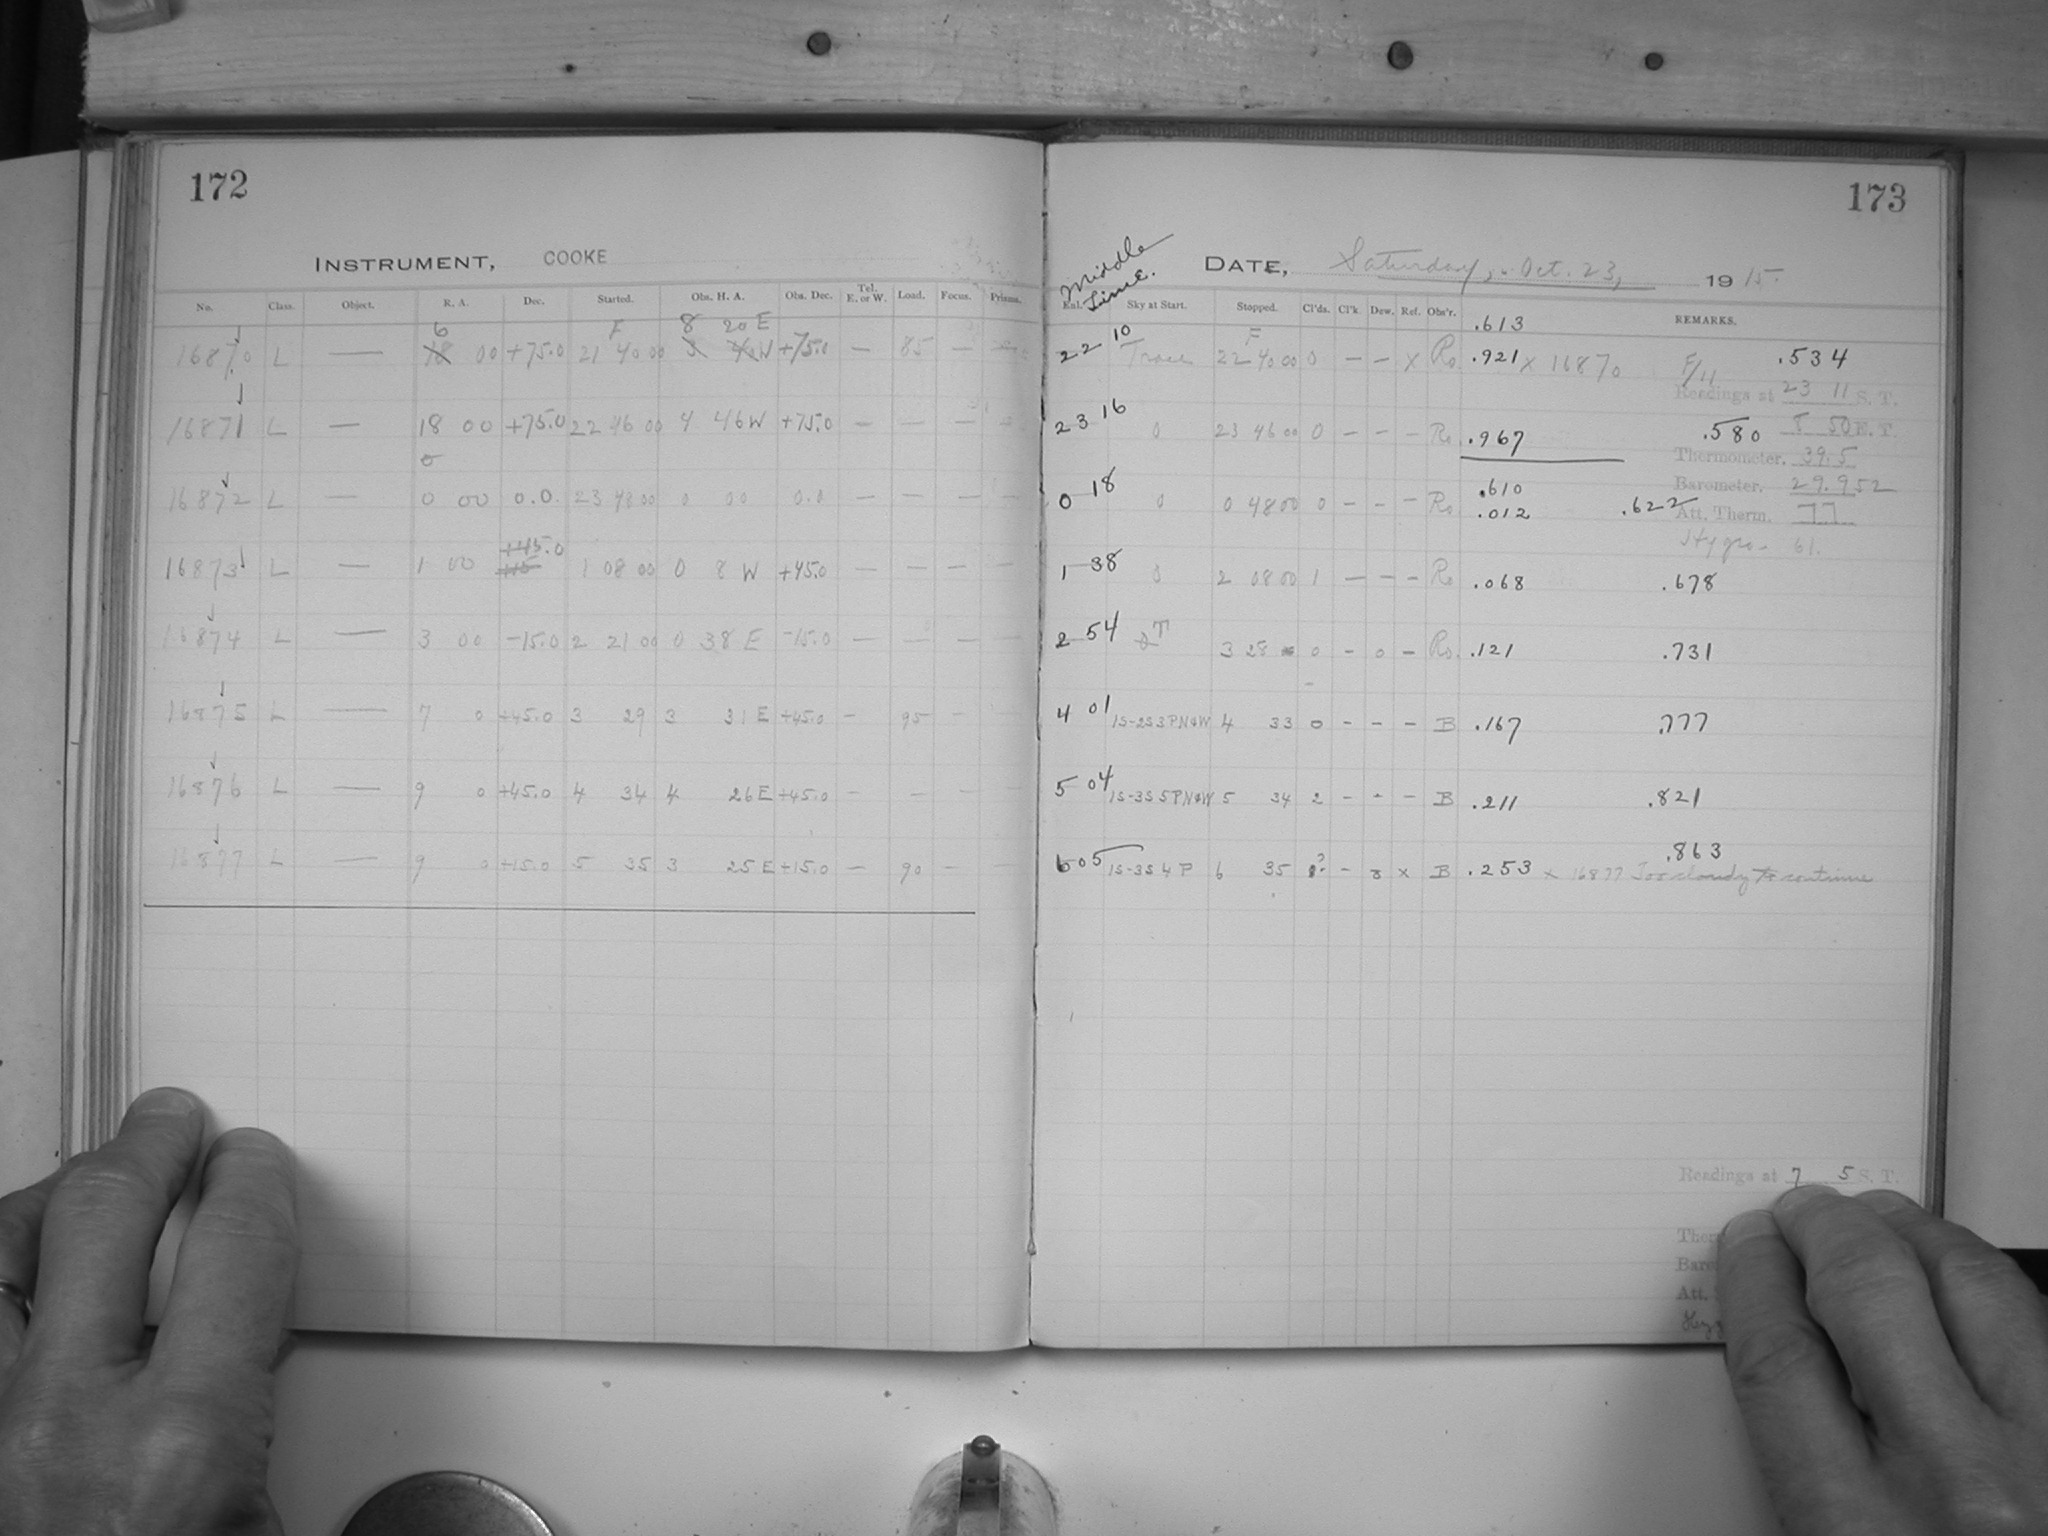 172
INSTRUMENT, COOKE
No. Class. Object. R. A. Dec. Started. Obs. H. A. Obs. Dec. Tel. E. or W. Load. Focus. Prisms.
6 F 8 20 E
16870 L — 18 00 +75.0 21 40 00 3 40 W +75.0 — 85 — —
16871 L — 18 00 +75.0 22 46 00 4 46 W +75.0 — — — —
0
16872 L — 0 00 0.0. 23 48 00 0 00 0.0 — — — —
+45.0
16873 L — 1 00 1 08 00 0 8 W +45.0 — — — —
16874 L — 3 00 -15.0 2 21 00 0 38 E -15.0 — — — —
16875 L — 7 0 +45.0 3 29 3 31 E +45.0 — 95 —
16876 L — 9 0 +45.0 4 34 4 26 E +45.0 — — — —
16877 L — 9 0 +15.0 5 35 3 25 E +15.0 — 90 —
173
Middle Time.
DATE, Saturday, Oct. 23, 1915.
Exl. Sky at Start. Stopped. Cl'ds. Cl'k. Dew. Ref. Obs'r. REMARKS.
.613
F
22 10 Trace 22 40 00 0 — — x Ro. .921 x 16870 F/11 .534
Readings at 23 11 S. T.
23 16 0 23 46 00 0 — — — Ro .967 .580 8 50 M. T.
Thermometer, 39.5
.610 Barometer, 29.952
0 18 0 0 48 00 0 — — — Ro .012 .622 Att. Therm. 77
Hygro- 61.
1 38 0 2 08 00 1 — — — Ro .068 .678
2 54 T 3 28 0 — 0 — Ro. .121 .731
4 01 1S-2S3PN&W 4 33 0 — — — B .167 .777
5 04 1S-3S5PN&W 5 34 2 — — — B .211 .821
.863
6 05 1S-3S4P 6 35 ? — x B .253 x 16877 Too cloudy to continue
Readings at 7 5 S. T.
Att.